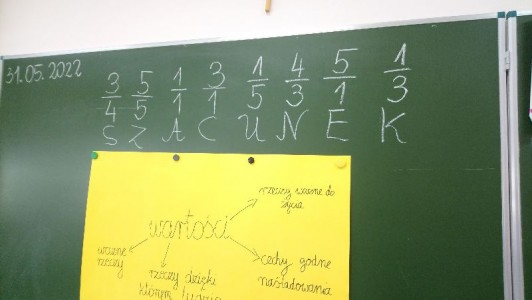 31.05.2022
3/4 5/5 1/1 3/1 1/5 4/3 5/1 1/3
S Z A C U N E K
rzeczy ważne do
życia
wartości
ważne
rzeczy
rzeczy dzięki
którym
cechy godne
naśladowania